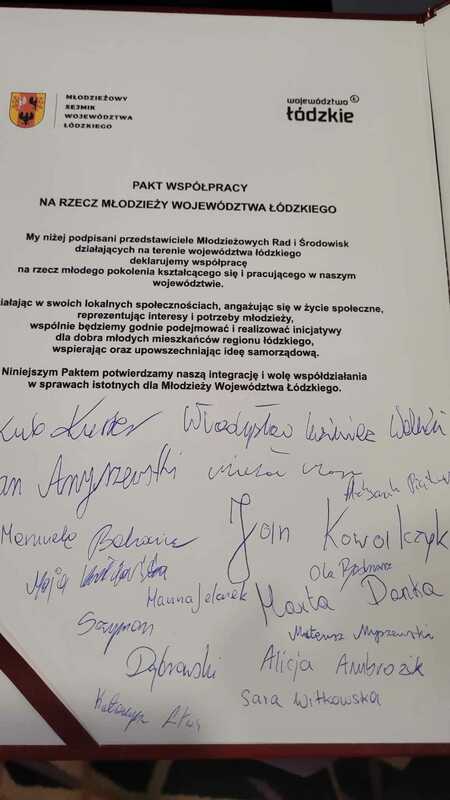 MŁODZIEŻOWY
SEJMIK
WOJEWÓDZTWA
ŁÓDZKIEGO
województwo
łódzkie
PAKT WSPÓŁPRACY
NA RZECZ MŁODZIEŻY WOJEWÓDZTWA ŁÓDZKIEGO
My niżej podpisani przedstawiciele Młodzieżowych Rad i Środowisk
działających na terenie województwa łódzkiego
deklarujemy współpracę
na rzecz młodego pokolenia kształcącego się i pracującego w naszym
województwie.
iałając w swoich lokalnych społecznościach, angażując się w życie społeczne,
reprezentując interesy i potrzeby młodzieży,
wspólnie będziemy godnie podejmować i realizować inicjatywy
dla dobra młodych mieszkańców regionu łódzkiego,
wspierając oraz upowszechniając ideę samorządową.
Niniejszym Paktem potwierdzamy naszą integrację i wolę współdziałania
w sprawach istotnych dla Młodzieży Województwa Łódzkiego.
Władysław
an Amyszewski
Jan Kowalczyk
Maja
Ola Bednarz
Hanna Marta Danka
Szymon
Mateusz Myszewski
Dąbrowski Alicja Ambrozik
Sara Witkowska